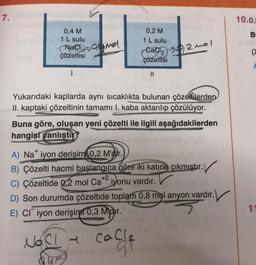 7.
0,4 M
1 L sulu
NaCl
çözeltisi
I
0,2 M
1 L sulu
CaCl₂
çözeltisi
II
Yukarıdaki kaplarda aynı sıcaklıkta bulunan çözeltilerden
II. kaptaki çözeltinin tamamı I. kaba aktarılıp çözülüyor.
Buna göre, oluşan yeni çözelti ile ilgili aşağıdakilerden
hangisi yanlıştır?
A) Na⁺ iyon derişimi 0,2 M'dır.
B) Çözelti hacmi başlangıca göre iki katına çıkmıştır.
C) Çözeltide 0,2 mol Ca⁺² iyonu vardır.
D) Son durumda çözeltide toplam 0,8 mol anyon vardır.
E) Cl⁻ iyon derişimi 0,3 M'dır.
NaCl + CaCl₂
10.